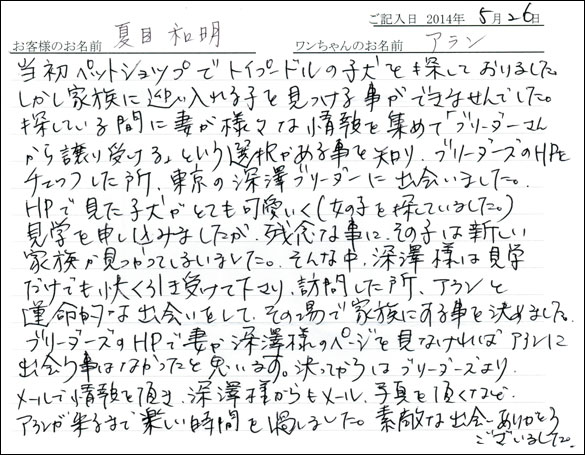 ご記入日 2014年 5月26日
お客様のお名前 夏目 和明 ワンちゃんのお名前 アラン
当初ペットショップでトイプードルの子犬を探しておりました。
しかし家族に迎い入れる子を見つける事ができませんでした。
探している間に妻が様々な情報を集めて「ブリーダーさん
から譲り受ける」という選択がある事を知り、ブリーダーズのHPを
チェックした所、東京の深澤ブリーダーに出会いました。
HPで見た子犬がとても可愛いく(女の子を探していました。)
見学を申し込みましたが、残念な事に、その子は新しい
家族が見つかってしまいました。そんな中、深澤様は見学
だけでも快く引き受けて下さり、訪問した所、アランと
運命的な出会いをして、その場で家族にする事を決めました。
ブリーダーズのHPで妻が深澤様のページを見なければアランに
出会う事はなかったと思います。決ってからはブリーダーズより
メールで情報を頂き、深澤様からもメール、写真を頂くなど
アランが来るまで楽しい時間を過しました。素敵な出会いありがとう
ございました。